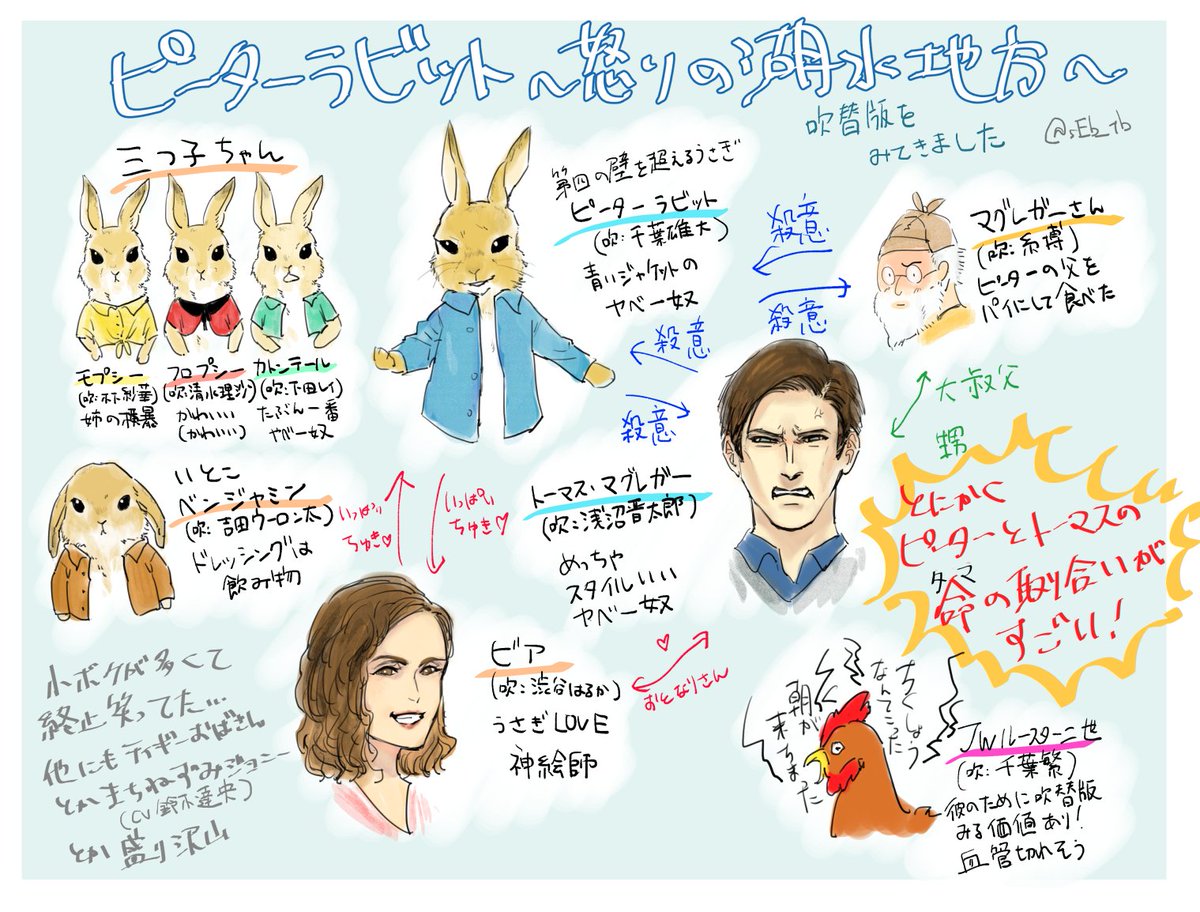 ピーターラビット〜怒りの湖水地方〜
吹替版を
みてきました
@sEb_tb
三つ子ちゃん
モプシー
(吹:木下彩華)
姉の横暴
フロプシー
(吹:清水理沙)
かわいい
(かわいい)
カトンテール
(吹:下田レイ)
たぶん一番
ヤベー奴
第四の壁を超えるうさぎ
ピーターラビット
(吹:千葉雄大)
青いジャケットの
ヤベー奴
殺意
殺意
殺意
殺意
マグレガーさん
(吹:糸博)
ピーターの父を
パイにして食べた
大叔父
甥
いとこ
ベンジャミン
(吹:吉田ウーロン太)
ドレッシングは
飲み物
いっぱい
ちゅき♡
いっぱい
ちゅき♡
トーマス・マグレガー
(吹:浅沼晋太郎)
めっちゃ
スタイルいい
ヤベー奴
とにかく
ピーターとトーマスの
タマ
命の取り合いが
すごい!
ビア
(吹:渋谷はるか)
うさぎLOVE
神絵師
♡
おとなりさん
ちくしょう
なんてこった
朝が
来ちまった
JWルースター二世
(吹:千葉繁)
彼のために吹替版
みる価値あり!
血管切れそう
小ボケが多くて
終止笑ってた…
他にもティギーおばさん
とかまちねずみジョニー
(CV鈴木達央)
とか盛り沢山